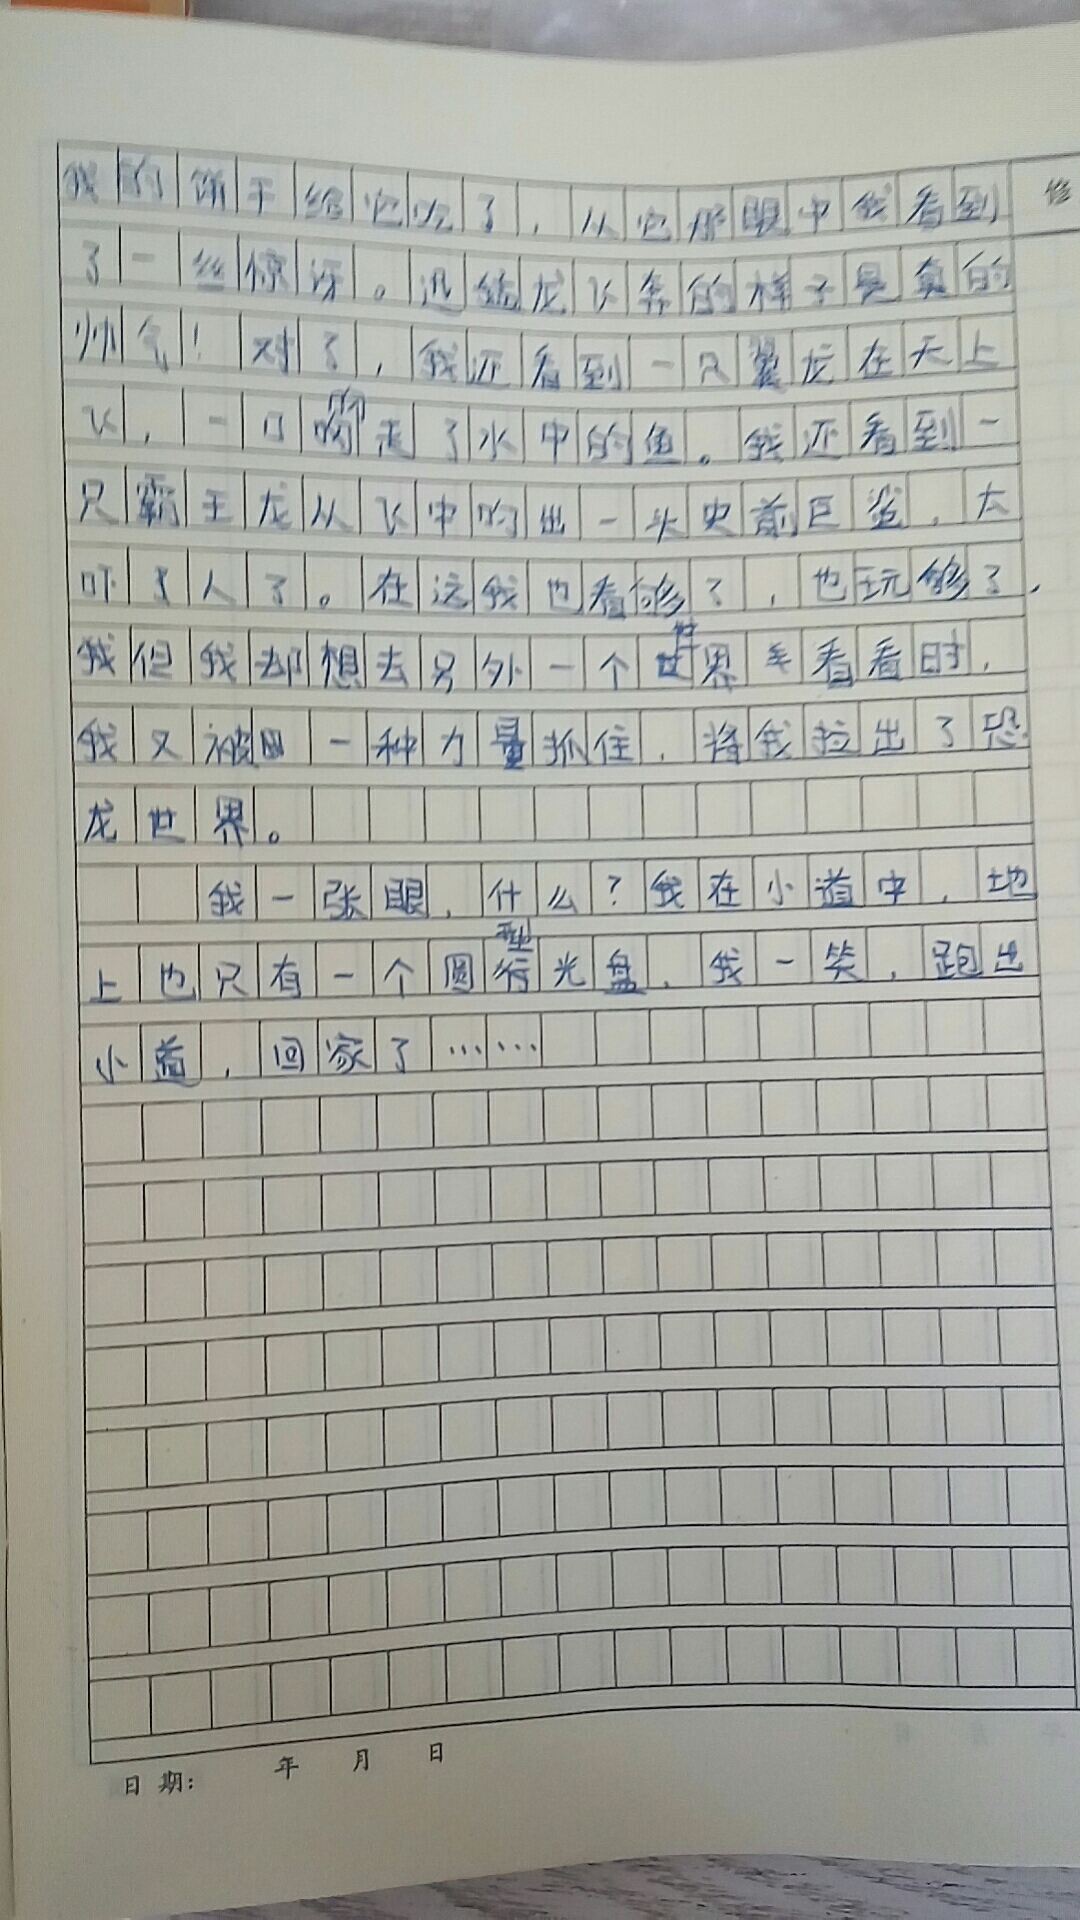 修
我的饼干给它吃了，从它那眼中我看到
了一丝惊讶。迅猛龙飞奔的样子是真的
帅气！对了，我还看到一只翼龙在天上
飞，一口叼走了水中的鱼。我还看到一
只霸王龙从飞中叼出一头史前巨鲨，太
吓人了。在这我也看够了，也玩够了，
我但我却想去另外一个世界看看时，
我又被一种力量抓住，将我拉出了恐
龙世界。
我一张眼，什么？我在小道中，地
上也只有一个圆型光盘，我一笑，跑出
小道，回家了……
日期： 年 月 日